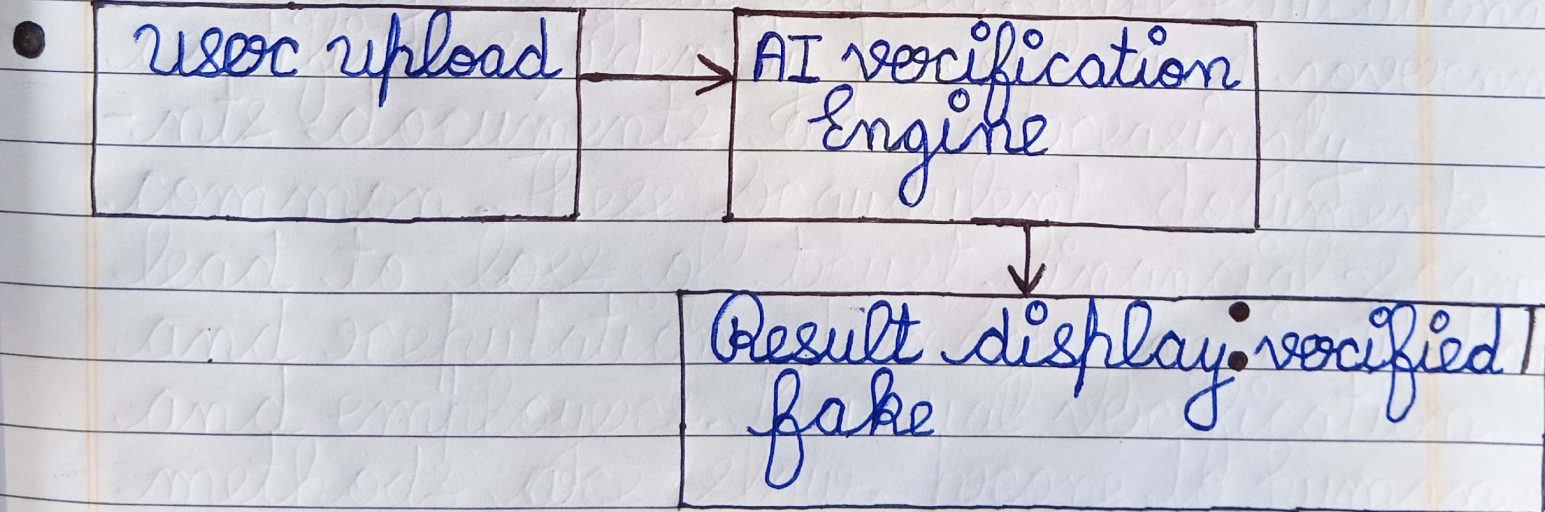 User upload
AI verification
Engine
Result display: verified /
fake